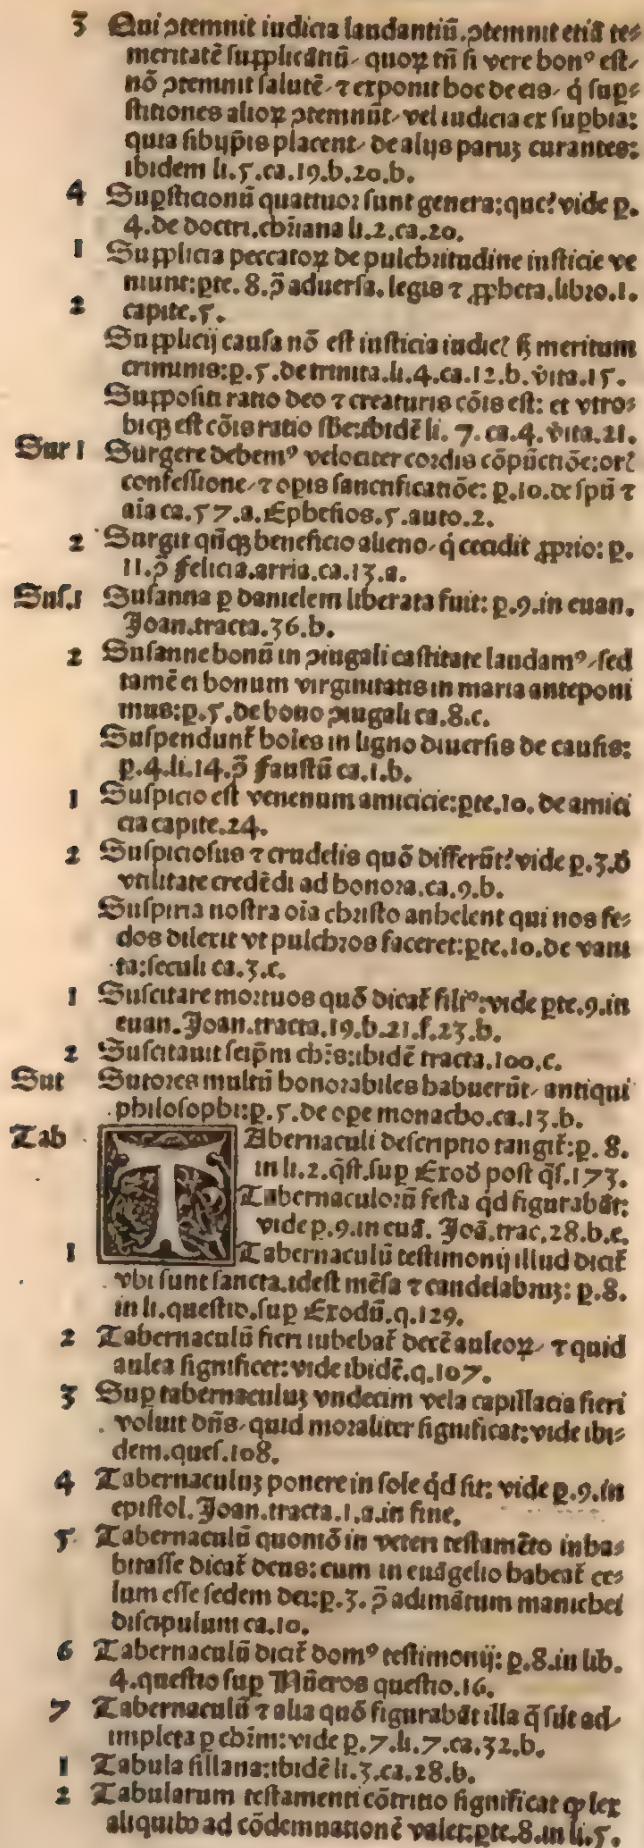 3 Qui ꝯtemnit iudicia laudantiũ. ꝯtemnit etiã te⸗
meritatẽ suspicãtiũ, quoꝝ tñ si vere bonꝰ est,
nõ ꝯtemnit salutẽ, ⁊ exponit hoc de eis, q̇ sup⸗
stitiones alioꝝ ꝯtemnũt, vel iudicia ex supbia:
quia sibijp̃is placent, de alijs paruʒ curantes:
ibidem li.5.ca.19.b.20.b.
4 Supsticionũ quattuor sunt genera: que? vide p.
4.de doctri.christiana li.2.ca.20.
1 Supplicia peccatoꝝ de pulchritudine iusticie ve
niunt: pte.8.ꝯ̃ aduersa. legis ⁊ ꝓpheta.libro.1.
2 capite.5.
Supplicij causa nõ est iusticia iudicꝭ sꝫ meritum
criminis: p.5.de trinita.li.4.ca.12.b. v̈ita.15.
Suppositi ratio deo ⁊ creaturis cõis est: et vtro
biqꝫ est cõis ratio sbe: ibidẽ li.7.ca.4.v̈ita.21.
Sur 1 Surgere debemꝰ velociter cordis cõpũctiõe: orꝭ
confessione, ⁊ opis sanctificatiõe: p.10.de spũ ⁊
aĩa ca.57.a. Ephesios.5.auto.2.
2 Surgit qñqꝫ beneficio alieno, q̇ cecidit ꝓprio: p.
11.ꝯ̃ felicia.arria.ca.13.a.
Sus.1 Susanna p danielem liberata fuit: p.9.in euan.
Joan.tracta.36.b.
2 Susanne bonũ in ꝯiugali castitate laudamꝰ, sed
tamẽ ei bonum virginitatis in maria anteponi
mus: p.5.de bono ꝯiugali ca.8.c.
Suspendunt̃ hoies in ligno diuersis de causis:
p.4.li.14.ꝯ̃ faustũ ca.1.b.
1 Suspicio est venenum amicicie: pte.10. de amici
cia capite.24.
2 Suspiciosus ⁊ crudelis quõ differũt? vide p.3.d̃
vtilitate credẽdi ad honora.ca.9.b.
Suspiria nostra oĩa christo anhelent qui nos fe⸗
dos dilexit vt pulchros faceret: pte.10.de vani
ta: seculi ca.3.c.
1 Suscitare mortuos quõ dicat̃ filiꝰ: vide pte.9.in
euan. Joan.tracta.19.b.21.f.23.b.
2 Suscitauit seip̃m chr̃s: ibidẽ tracta.100.c.
Sut Sutores multũ honorabiles habuerũt, antiqui
philosophi: p.5.de ope monacho.ca.13.b.
Tab TAbernaculi descriptio tangit̃: p.8.
in li.2.q̃st.sup Exod post q̃s.173.
Tabernaculoꝝ festa qd̃ figurabãt:
vide p.9.in euã. Joã.trac.28.b.c.
1 Tabernaculũ testimonij illud dicit̃
vbi sunt sancta.idest mẽsa ⁊ candelabruʒ: p.8.
in li.questio.sup Exodũ.q.129.
2 Tabernaculũ fieri iubebat̃ decẽ auleoꝝ, ⁊ quid
aulea significet: vide ibidẽ.q.107.
3 Sup tabernaculuʒ vndecim vela capillacia fieri
voluit dñs, quid moraliter significat: vide ibi⸗
dem.ques.108.
4 Tabernaculuʒ ponere in sole q̇d sit: vide p.9.in
epistol. Joan.tracta.1.a.in fine.
5 Tabernaculũ quomõ in veteri testamẽto inha⸗
bitasse dicat̃ deus: cum in euãgelio habeat̃ ce⸗
lum esse sedem dei: p.3. ꝯ̃ adimãtum manichei
discipulum ca.10.
6 Tabernaculũ dicit̃ domꝰ testimonij: p.8.in lib.
4.questio sup Nũeros questio.16.
7 Tabernaculũ ⁊ alia quõ figurabãt illa q̃ sũt ad⸗
impleta p chr̃m: vide p.7.li.7.ca.32.b.
1 Tabula sillana: ibidẽ li.3.ca.28.b.
2 Tabularum testamenti cõtritio significat ꝙ lex
aliquibꝰ ad cõdemnationẽ valet: pte.8.in li.5.